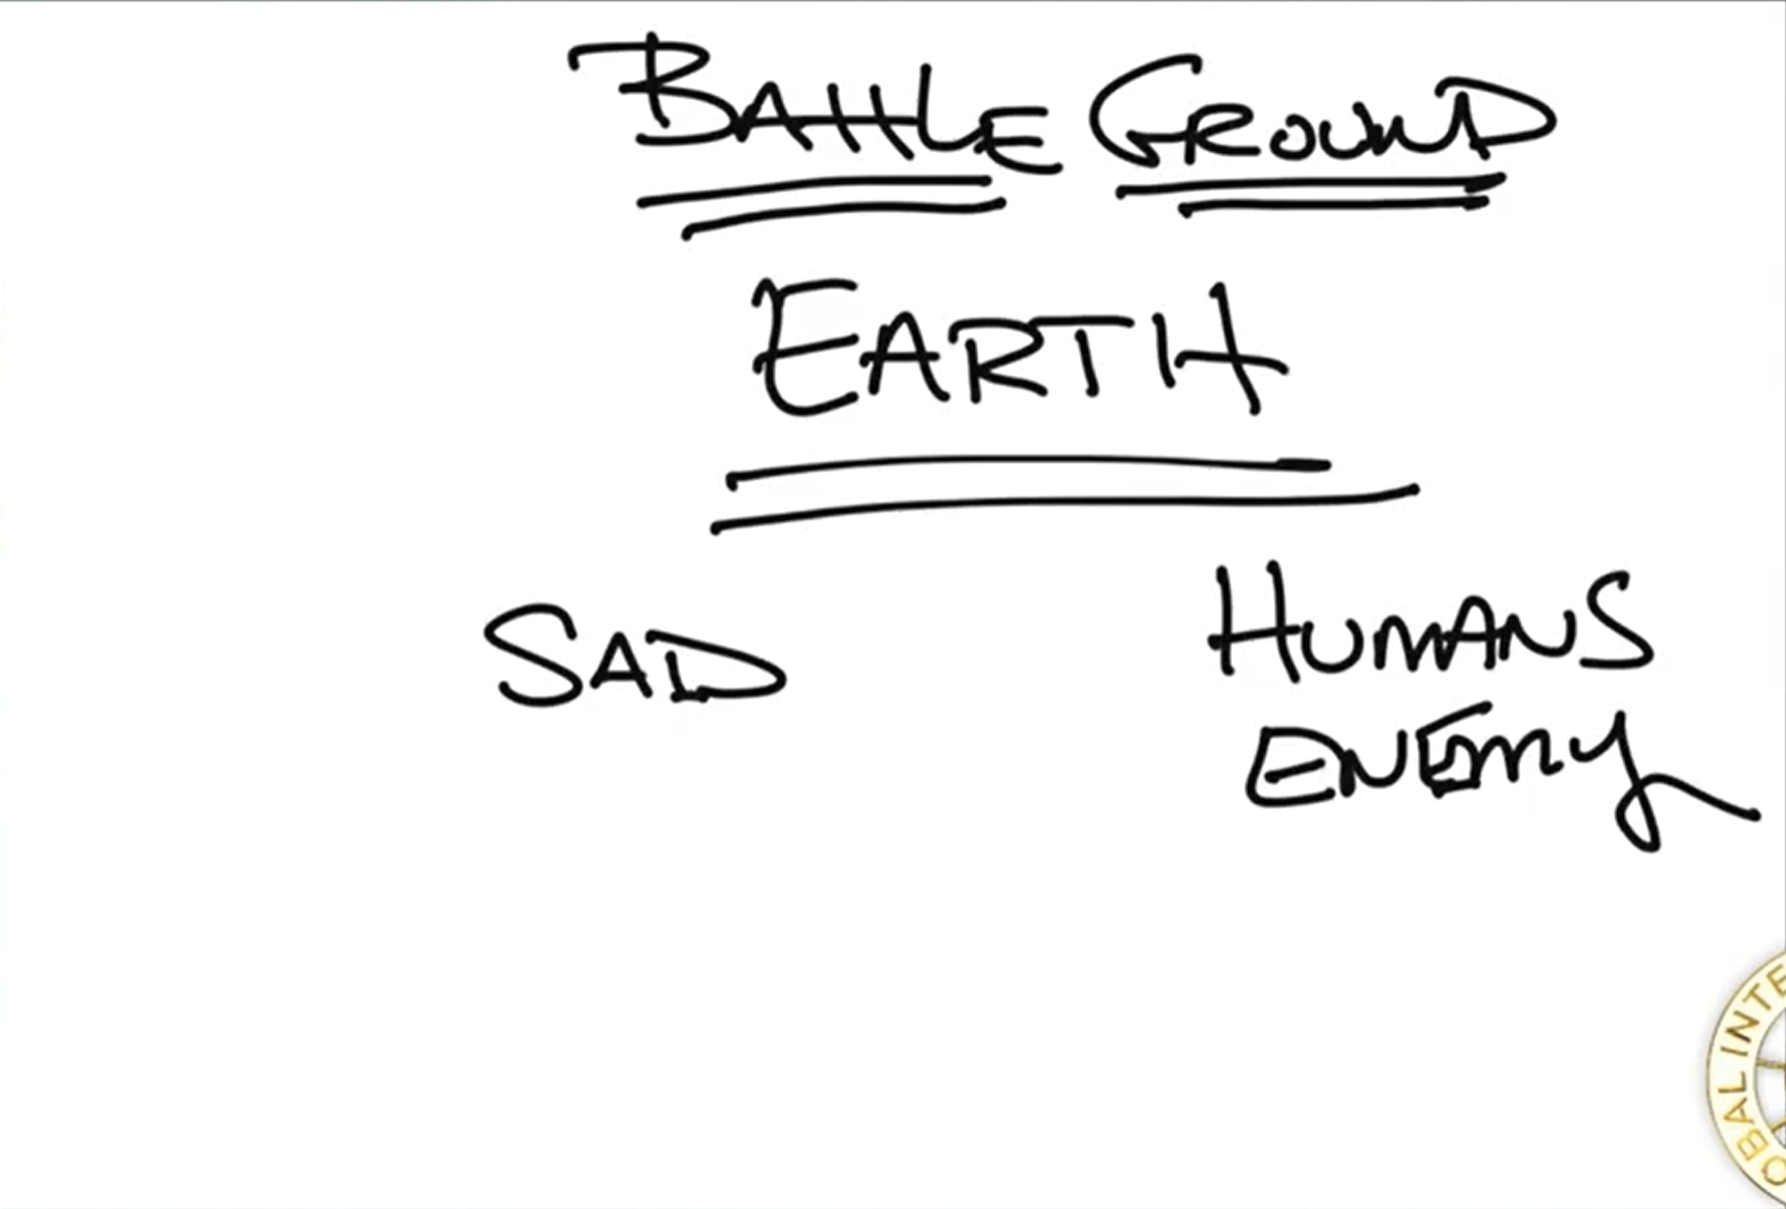 BATTLE GROUND
EARTH
SAD
HUMANS
ENEMY
OBAL INTE